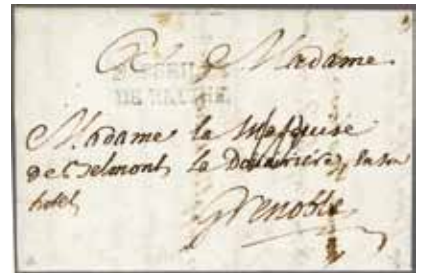 A Madame
DE MALTHE.
Madame la Marquise
de Belmont, la Douairiere, en son
hotel,
Grenoble